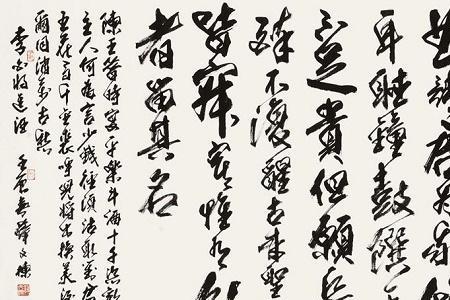 請君為我
耳聽鐘鼓饌
不足貴但願長
醉不復醒古來聖
皆寂寞惟有
者留其名
陳王昔時宴平樂斗酒十千恣歡
主人何為言少錢徑須沽取對君
五花馬千金裘呼兒將出換美酒
爾同消萬古愁
李白將進酒